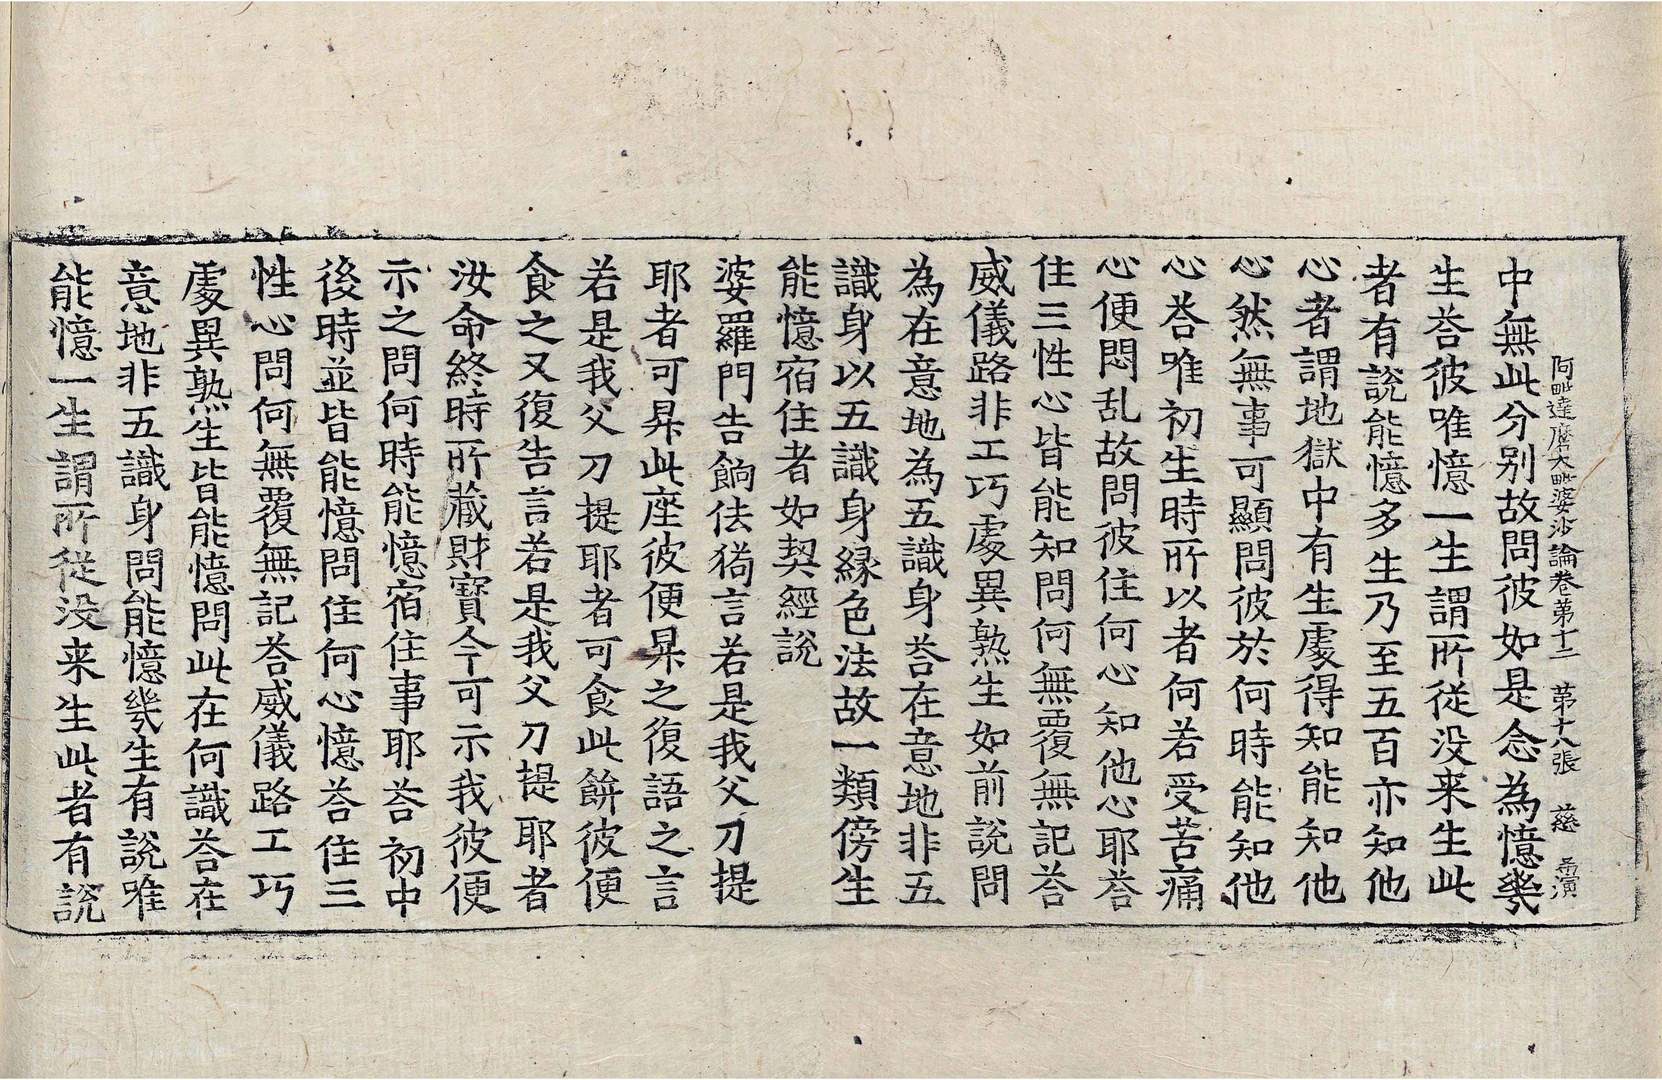 阿毗達磨大毗婆沙論卷第十二　第十八張　慈
中無此分别故問彼如是念為憶幾
生荅彼唯憶一生謂所從没来生此
者有說能憶多生乃至五百亦知他
心者謂地獄中有生處得知能知他
心然無事可顯問彼於何時能知他
心荅唯初生時所以者何若受苦痛
心便悶乱故問彼住何心知他心耶荅
住三性心皆能知問何無覆無記荅
威儀路非工巧處異熟生如前說問
為在意地為五識身荅在意地非五
識身以五識身緣色法故一類傍生
能憶宿住者如契經說
婆羅門告餉佉狗言若是我父刀提
耶者可昇此座彼便昇之復語之言
若是我父刀提耶者可食此餅彼便
食之又復告言若是我父刀提耶者
汝命終時所藏財寶今可示我彼便
示之問何時能憶宿住事耶荅初中
後時並皆能憶問住何心憶荅住三
性心問何無覆無記荅威儀路工巧
處異熟生皆能憶問此在何識荅在
意地非五識身問能憶幾生有說唯
能憶一生謂所從没来生此者有說